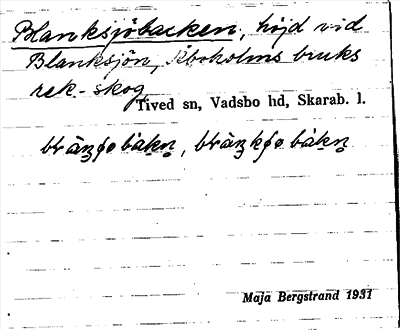 Blanksjöbacken, höjd vid
Blanksjön, Åboholms bruks
rek.-skog
Tived sn, Vadsbo hd, Skarab. l.
Maja Bergstrand 1931